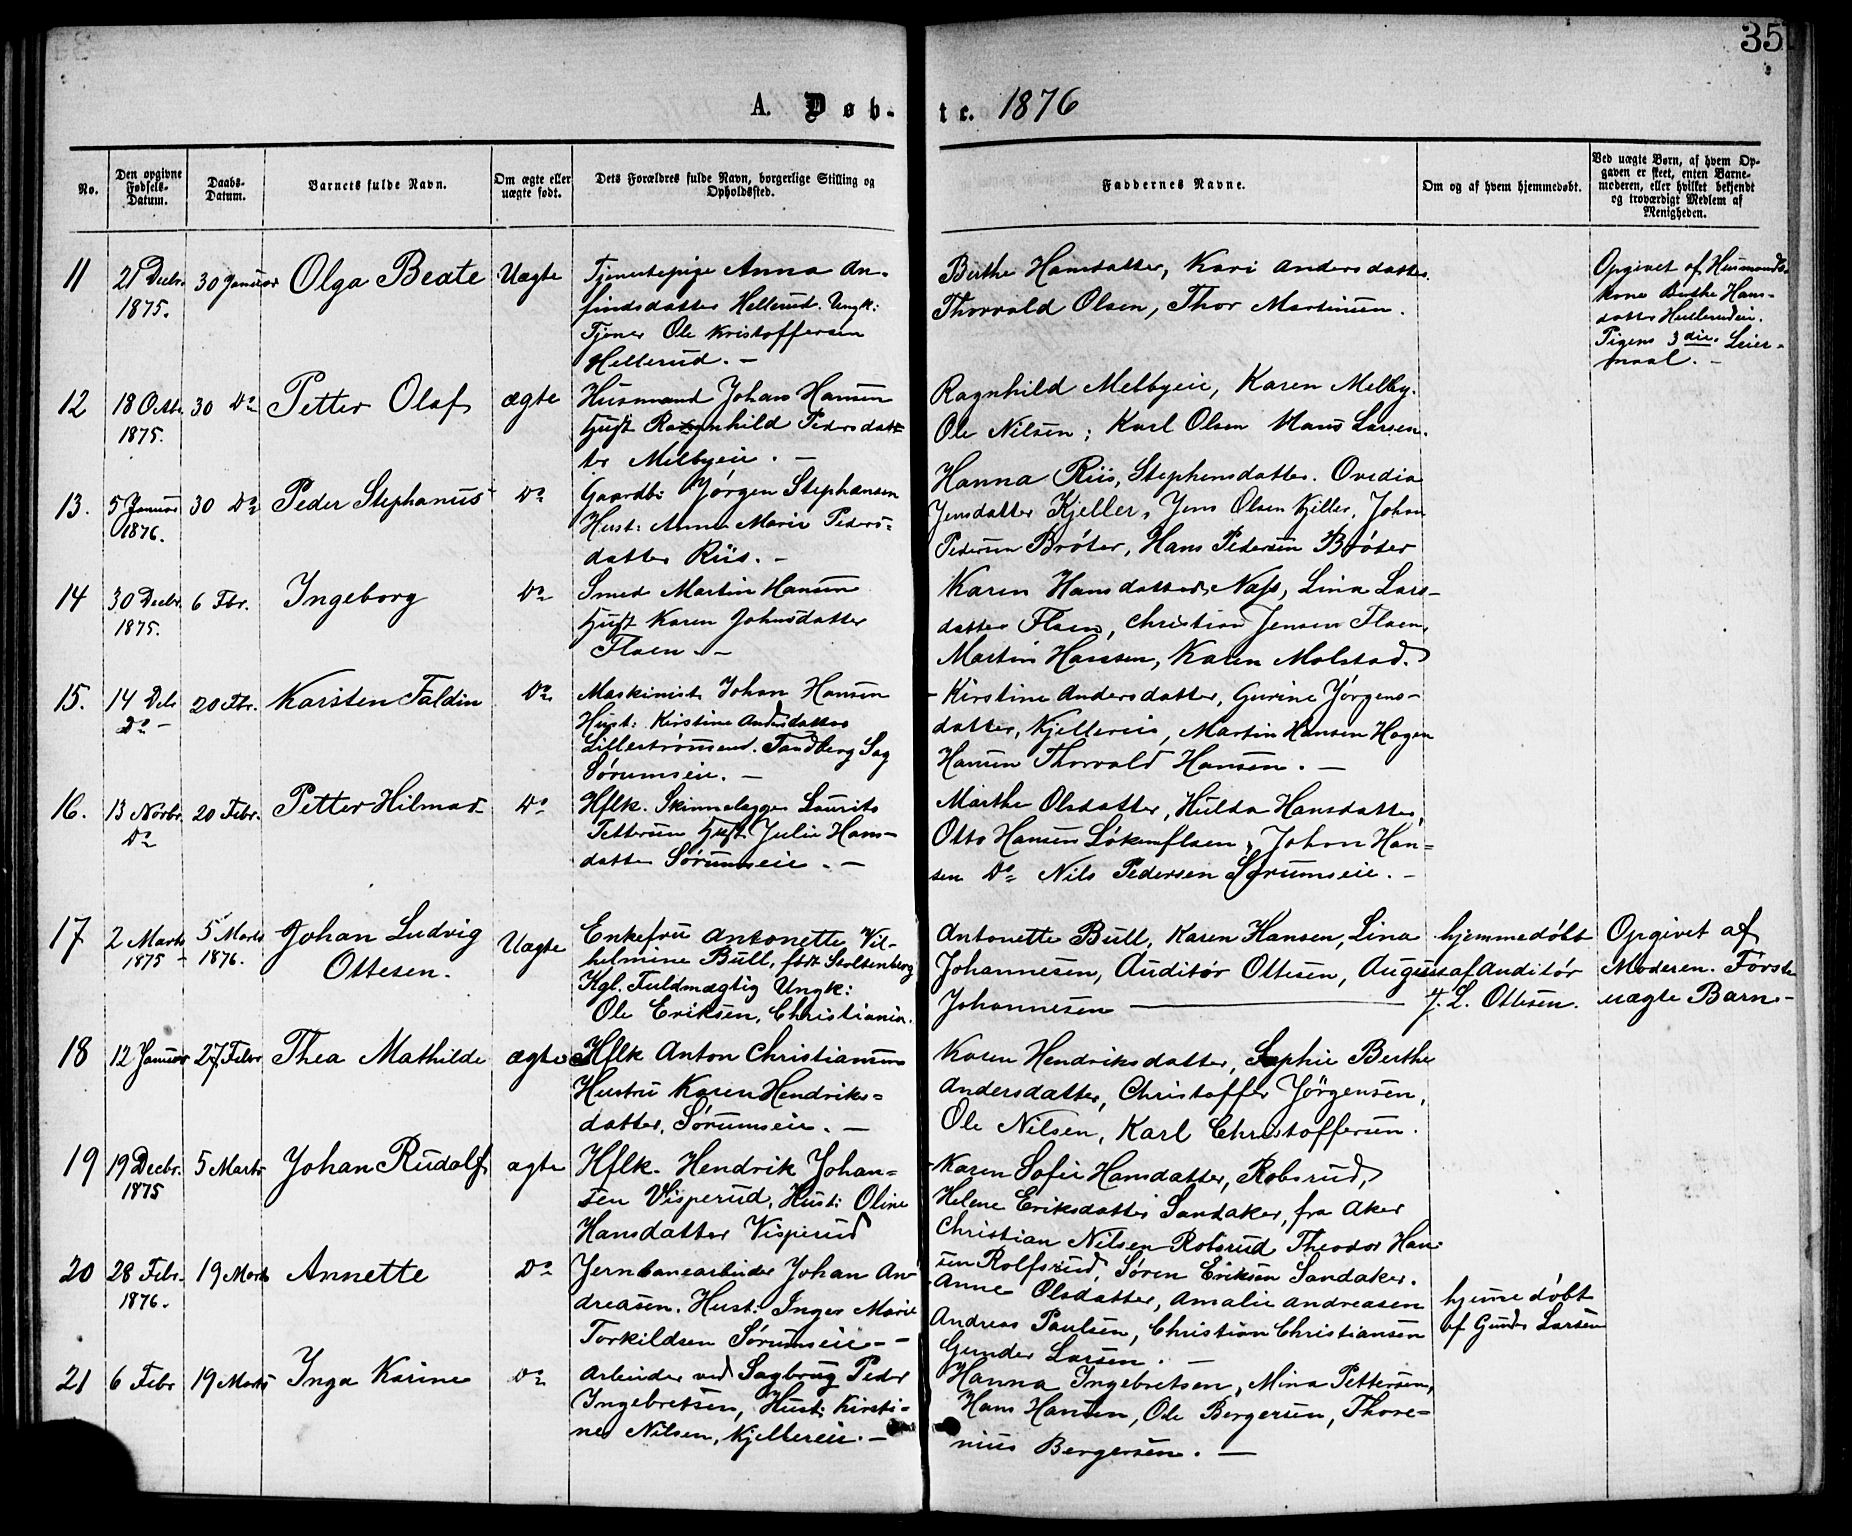 35
A. Døb-
te. 1876
No.
Den opgivne Fødsels-Datum.
Daabs-Datum.
Barnets fulde Navn.
Om ægte eller uægte født.
Dets Forældres fulde Navn, borgerlige Stilling og Opholdssted.
Faddernes Navne.
Om og af hvem hjemmedøbt.
Ved uægte Børn, af hvem Op-
gaven er skeet, enten Barne-
moderen, eller hvilket bekjendt
og troværdigt Medlem af
Menigheden.
11 21 Decbr. 1875. 30 Januar Olga Beate Uægte
Tjenestepige Anna An-
findsdatter Hellerud. Ungk:
Tjener Ole Kristoffersen
Hellerud. -
Berthe Hansdatter, Kari Andersdatter.
Thorvald Olsen, Thor Martinsen.
Opgivet af Husmands-
kone Berthe Hans-
datter Hellerudeie.
Pigens 3 die. Leier-
maal. -
12 18 Octbr. 1875. 30 Do Petter Olaf ægte
Husmand Johan Hansen
Hust Ragnhild Pedersdat-
ter Melbyeie. -
Ragnhild Melbyeie, Karen Melby.
Ole Nilsen; Karl Olsen Hans Larsen.
13. 5 Januar 1876. 30 Do Peder Stephanus Do
Gaardb: Jørgen Stephansen
Hust: Anne Marie Peders-
datter Riis. -
Hanna Riis, Stephensdatter. Ovedia
Jensdatter Kjeller, Jens Olsen Kjeller, Johan
Pedersen Brøter, Hans Pedersen Brøter
14 30 Decbr. 1875. 6 Fbr. Ingeborg Do
Smed Martin Hansen
Hust Karen Johnsdatter
Flaen. -
Karen Hansdatter Næss, Lina Lars-
datter Flaen, Christian Jensen Flaen,
Martin Hanssen, Karen Molstad.
15. 14 Dcb Do - 20 Fbr. Karsten Faldin Do
Maskinist Johan Hansen
Hust: Kirstine Andersdatter
Lillestrømmen. Tandberg Sag
Sørumseie. -
Kirstine Andersdatter, Gurine Jørgens-
datter, Kjellereie, Martin Hansen Hagen
Hansen Thorvald Hansen. -
16. 13 Novbr. Do 20 Febr. Petter Hilmar Do
Hflk. Skinnelægger Laurits
Pettersen Hust. Julie Hans-
datter Sørumseie. -
Marthe Olsdatter, Hulda Hansdatter,
Otto Hansen Løkenflaen, Johan Han-
sen Do Nils Pedersen Sørumseie. -
17 2 Marts 1875 5 Marts 1876. Johan Ludvig
Ottesen. Uægte
Enkefru Antonette Vil-
helmine Bull, født Stoltenberg
Kgl. Fuldmægtig Ungk:
Ole Eriksen, Christiania.
Antonette Bull, Karen Hansen, Lina
Johannesen, Auditør Ottesen, August
Johannesen
hjemmedøbt
af Auditør
J. L. Ottesen.
Opgivet af
Moderen. Første
uægte Barn. -
18 12 Januar 27 Febr Thea Mathilde ægte
Hflk Anton Christiansen
Hustru Karen Hendriks-
datter, Sørumseie. -
Karen Hendriksdatter, Sophie Berthe
Andersdatter, Christoffer Jørgensen,
Ole Nilsen, Karl Christoffersen.
19 19 Decbr. 1875 5 Marts Johan Rudolf ægte
Hflk. Hendrik Johan-
sen Visperud, Hust: Oline
Hansdatter Visperud
Karen Sofie Hansdatter, Robsrud,
Helene Eriksdatter Sandaker, fra Aker
Christian Nilsen Robsrud Theodor Han-
sen Rolfsrud, Søren Eriksen Sandaker.
20 28 Febr. 1876. 19 Marts Annette Do
Jernbanearbeider Johan An-
dreasen. Hust: Inger Marie
Torkildsen Sørumseie. -
Anne Olsdatter, Amalie Andreasen
Andreas Paulsen, Christian Christiansen
Gunder Larsen. -
hjemedøbt
af Gunder Larsen
21 6 Febr 19 Marts Inga Karine Do
Arbeider ved Sagbrug Peder
Ingebretsen, Hust: Kirsti-
ne Nilsen, Kjellereie. -
Hanna Ingebretsen, Mina Pettersen,
Hans Hansen, Ole Bergersen, Thore-
nius Bergersen. -